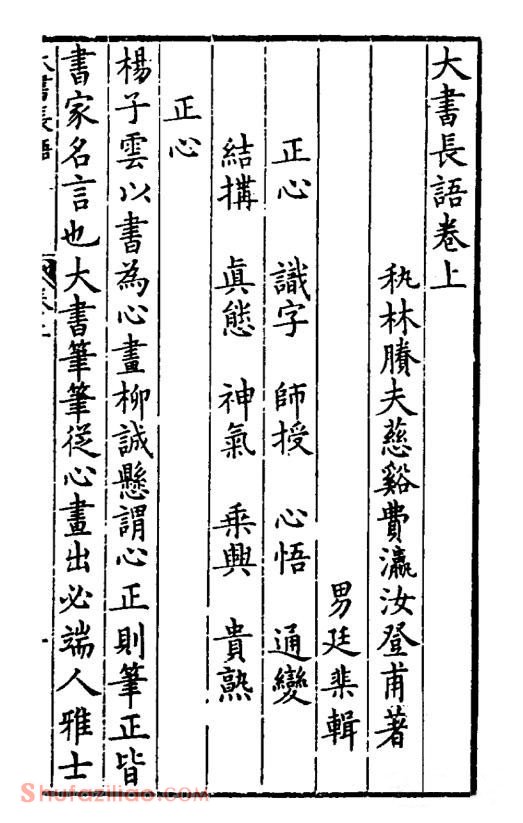 大書長語卷上
秇林賸夫慈谿費瀛汝登甫著
男廷棐輯
正心 識字 師授 心悟 通變
結搆 眞態 神氣 乘興 貴熟
正心
楊子雲以書為心畫柳誠懸謂心正則筆正皆
書家名言也大書筆筆從心畫出必端人雅士
Shufaziliao.com